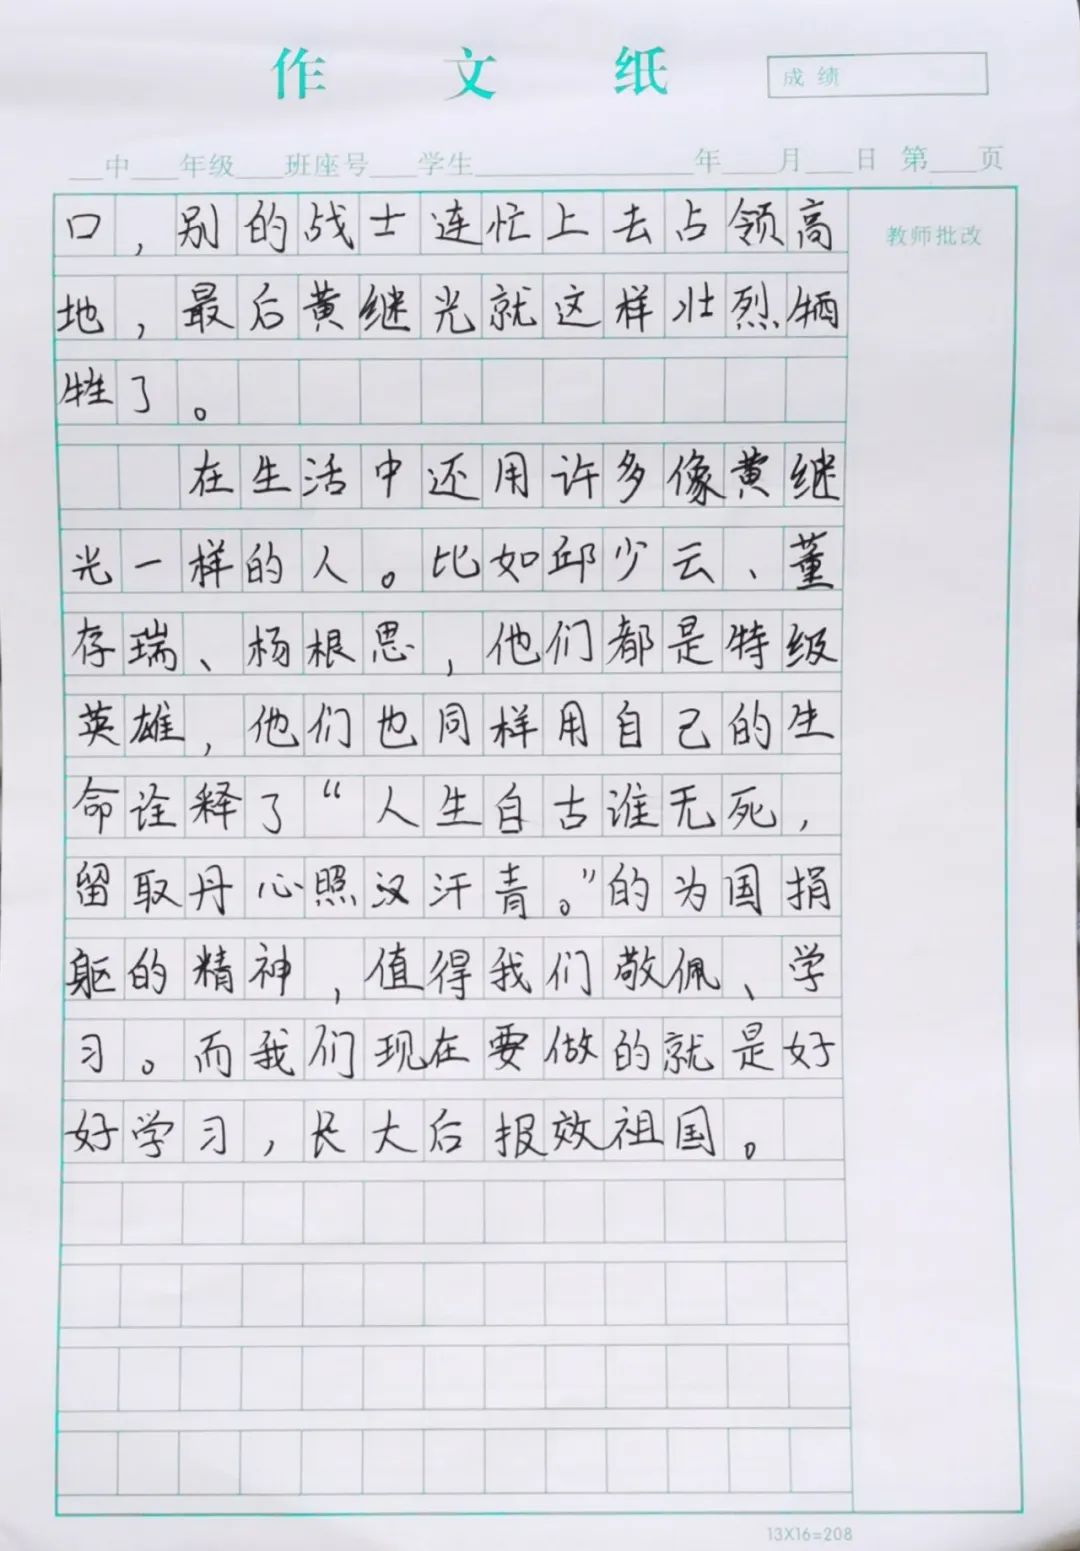 作 文 纸
成绩
中 年级 班座号 学生 年 月 日 第 页
教师批改
口，别的战士连忙上去占领高
地，最后黄继光就这样壮烈牺
牲了。
在生活中还用许多像黄继
光一样的人。比如邱少云、董
存瑞、杨根思，他们都是特级
英雄，他们也同样用自己的生
命诠释了“人生自古谁无死，
留取丹心照汉汗青。”的为国捐
躯的精神，值得我们敬佩、学
习。而我们现在要做的就是好
好学习，长大后报效祖国。
13X16=208